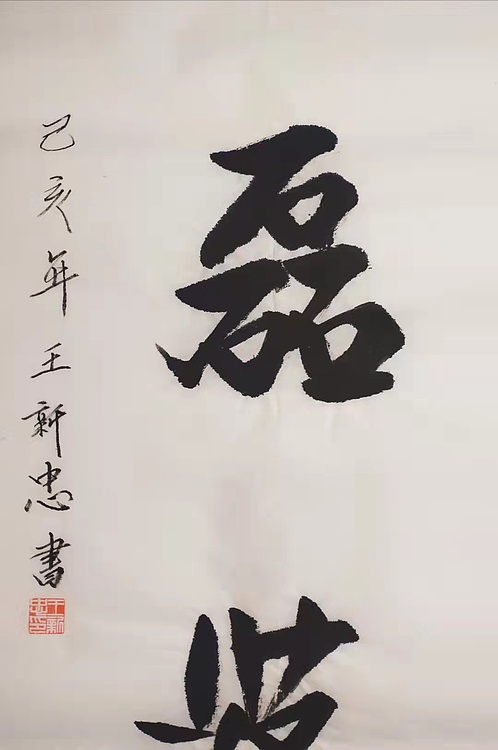 磊
己亥年王新忠書
王新忠印